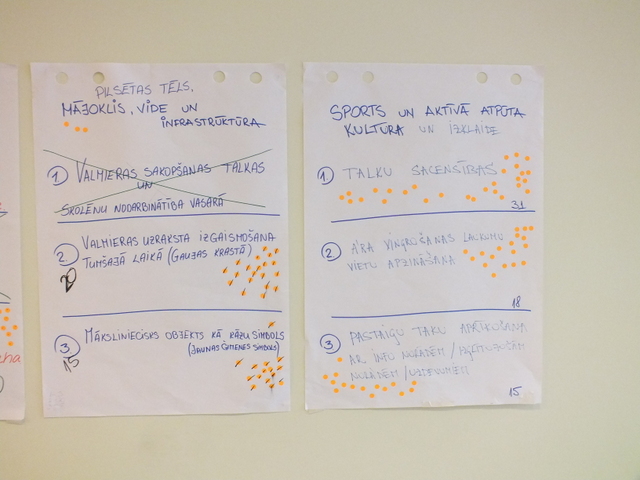 PILSĒTAS TĒLS,
MĀJOKLIS, VIDE UN
INFRASTRUKTŪRA
1 VALMIERAS SAKOPŠANAS TALKAS
UN
SKOLĒNU NODARBINĀTĪBA VASARĀ
2 VALMIERAS UZRAKSTA IZGAISMOŠANA
TUMŠAJĀ LAIKĀ (GAUJAS KRASTĀ)
20
3 MĀKSLINIECISKS OBJEKTS KĀ RĀZU SIMBOLS
(JAUNAS ĢIMENES SIMBOLS)
15
SPORTS UN AKTĪVĀ ATPŪTA
KULTŪRA UN IZKLAIDE
1 TALKU SACENSĪBAS
31
2 ĀRA VINGROŠANAS LAUKUMU
VIETU APZINĀŠANA
18
3 PASTAIGU TAKU APRĪKOŠANA
AR INFO NORĀDĒM /
NORĀDĒM / UZDEVUMIEM
15